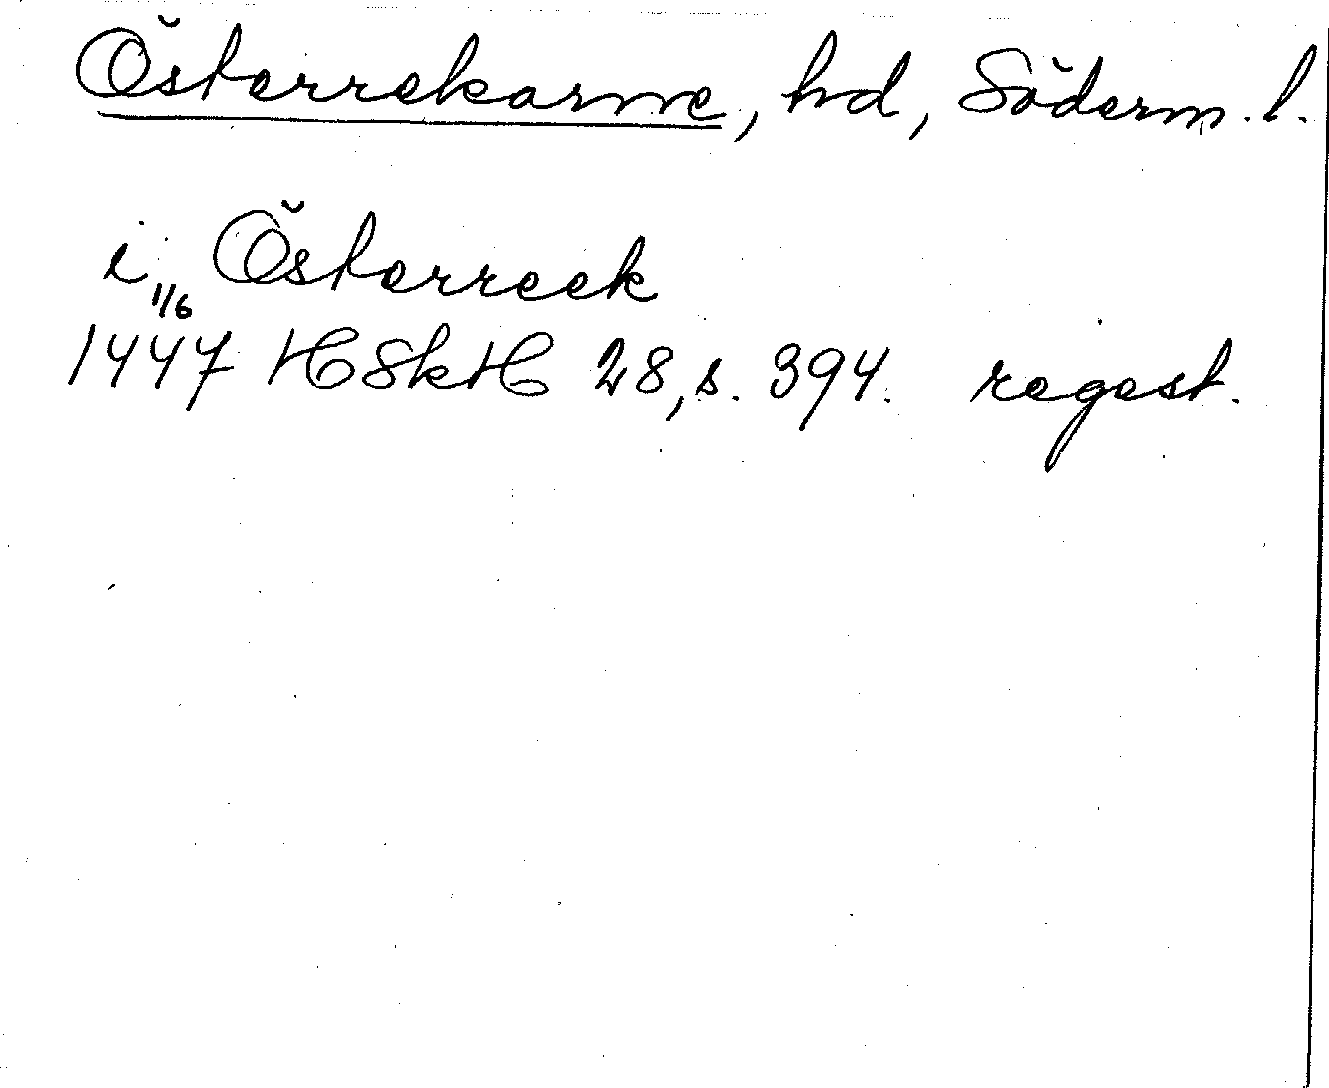 Österrekarne, hd, Söderm. l.
i Österreek
1/6
1447 HSkH 28, s. 394. regest.